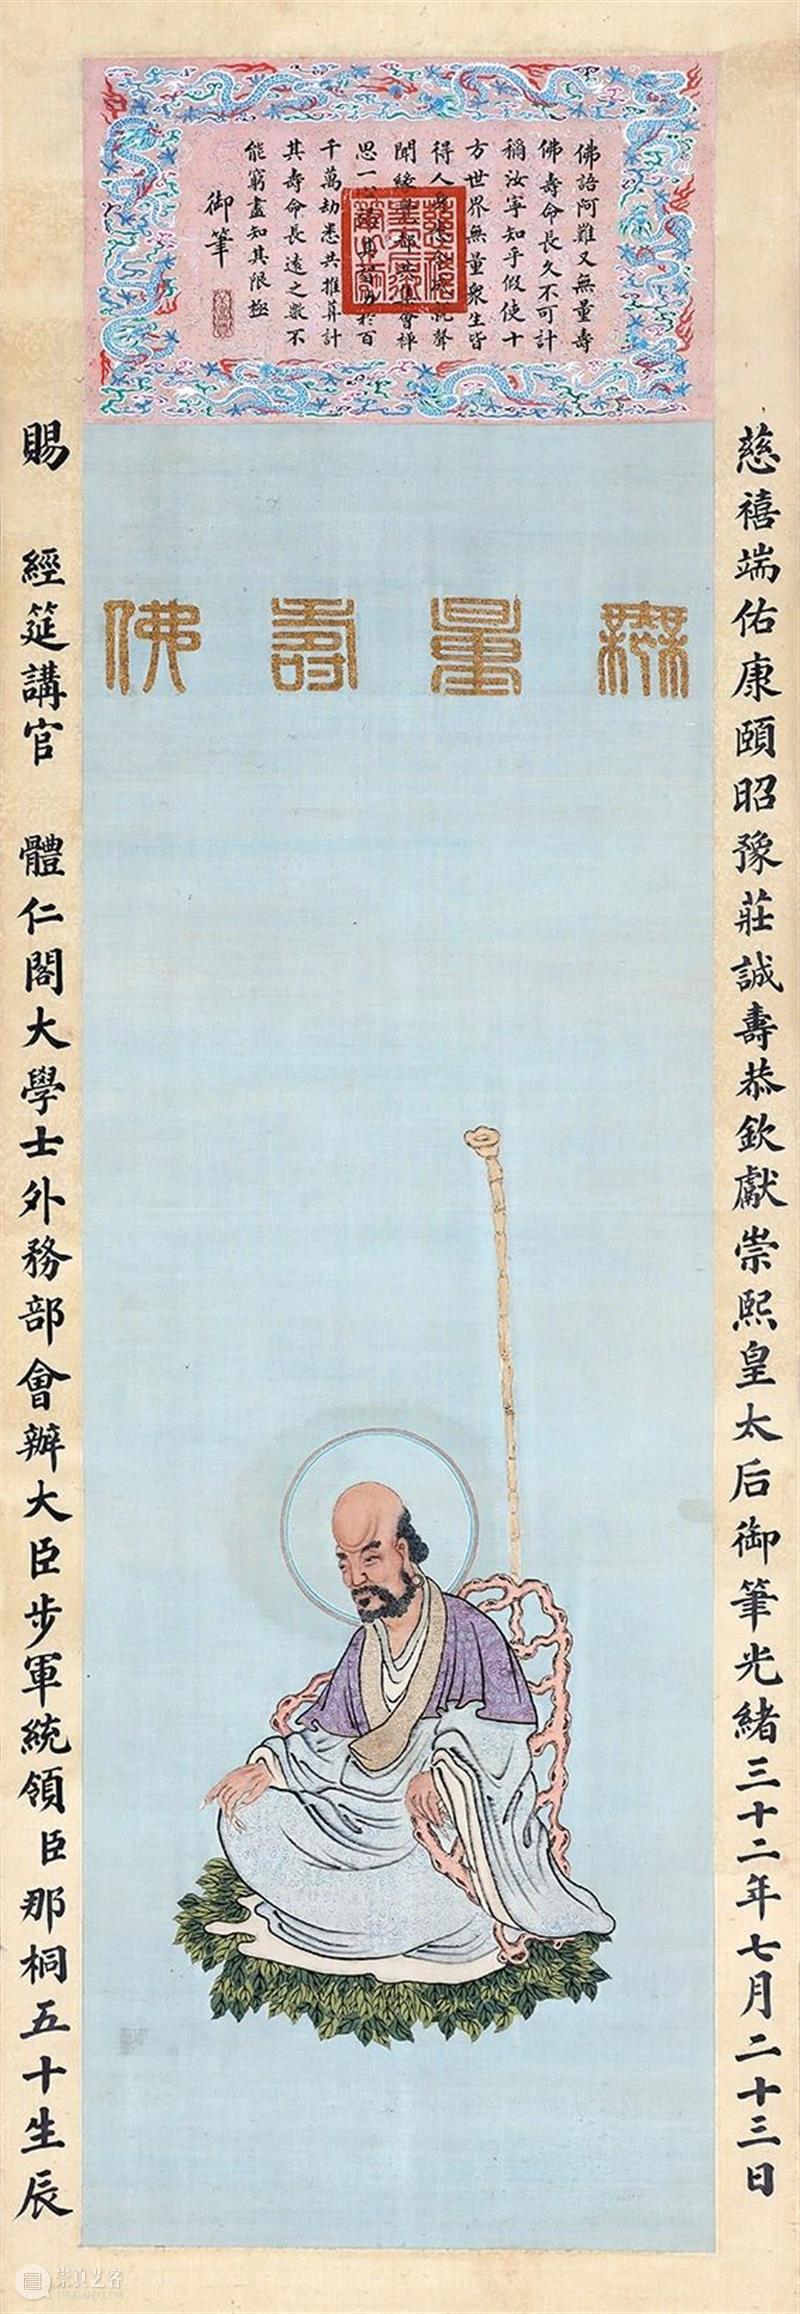 佛語阿難又無量壽
佛壽命長久不可計
稱汝寧知乎假使十
方世界無量衆生皆
得人身悉令成就聲
聞緣覺都共集會禪
思一心竭其智力於百
千萬劫悉共推算計
其壽命長遠之數不
能窮盡知其限極
御筆
無量壽佛
慈禧端佑康頤昭豫莊誠壽恭欽獻崇熙皇太后御筆光緒三十二年七月二十三日
賜 經筵講官 體仁閣大學士外務部會辦大臣步軍統領臣那桐五十生辰
崇真艺客